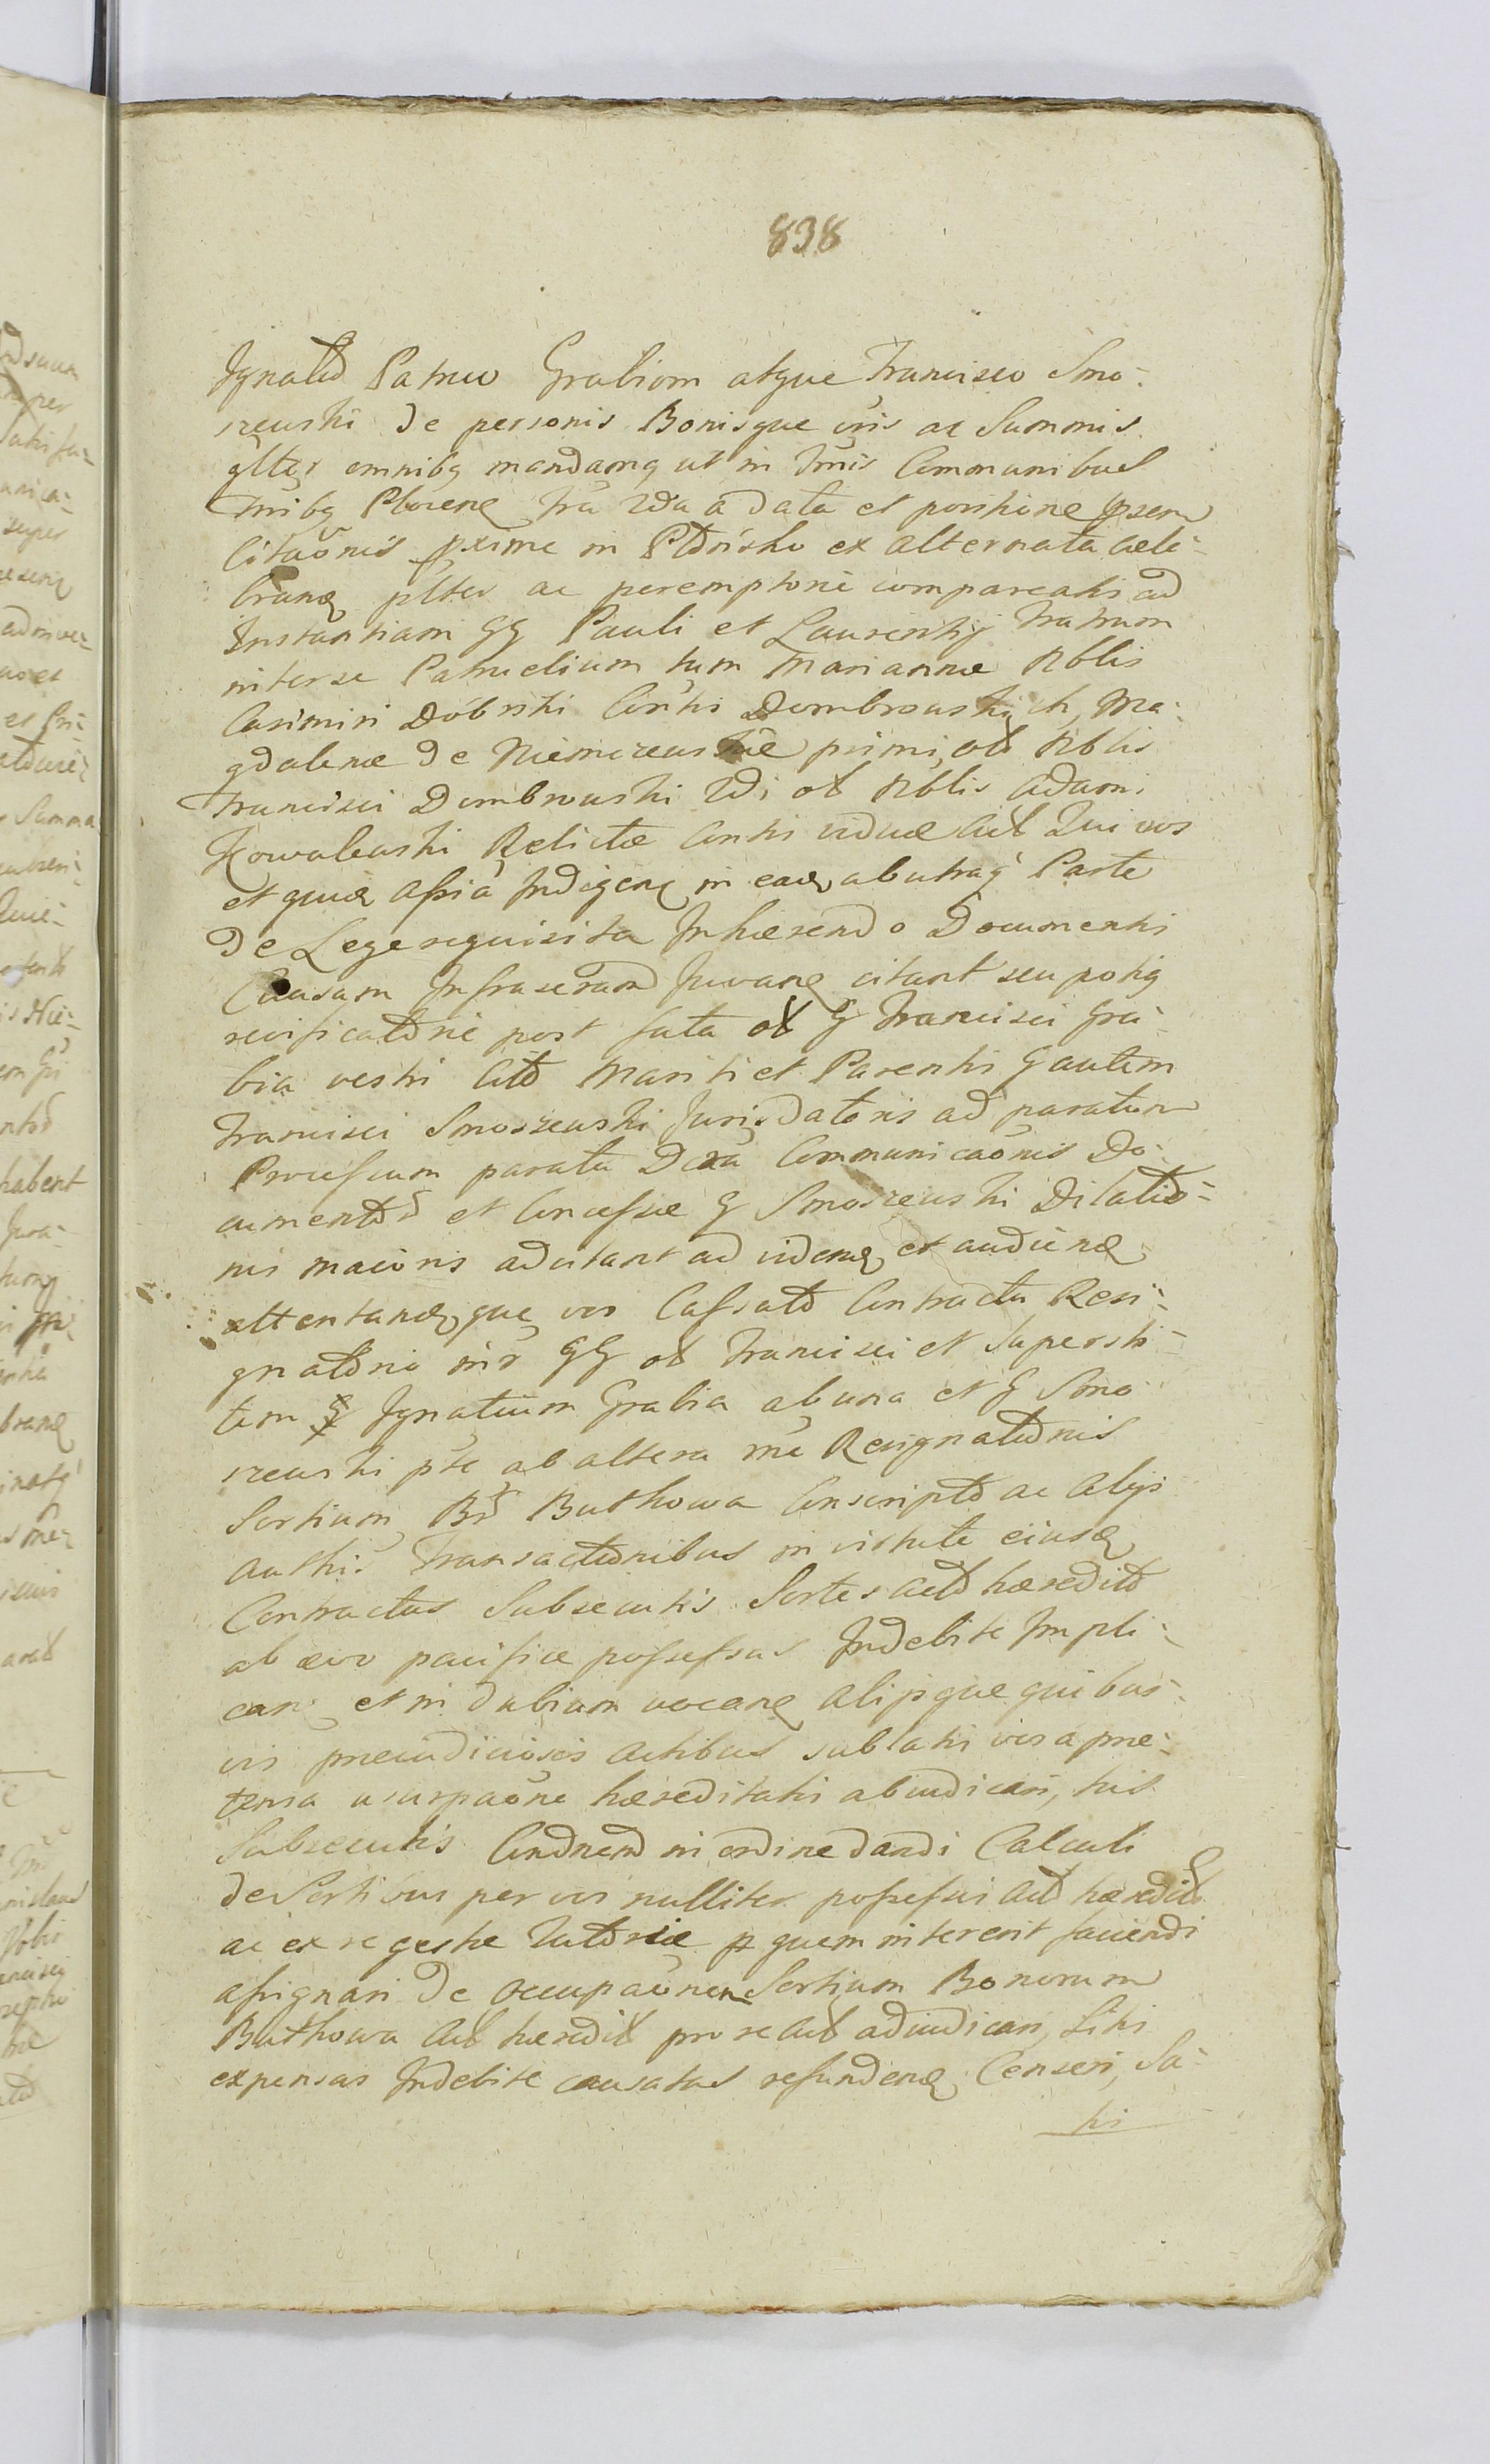 838
Ignatio Patruo Grabiom atque Francisco Smo-
szewski de personis Bonisque vris ac Summis
gltr omnibq mandamq ut in Tmis Communibus
Tmibq Plocenq fra 2da a data et positione psen
Citaonis pxime in Płońsko ex alternata cele-
branq pltr ac peremptorie compareatis ad
Instantiam GG Pauli et Laurentij Fratrum
inter se Patruelium tum Mariannæ Nblis
Casimiri Dobrski Conthi Dombrowskich, Ma-
gdalenæ de Niemirewskie primi, olt Nblis
Francisci Dombrowski 2di olt Nblis Adami
Kowalewski Relictæ Conthi viduæ Act Qui vos
et quæ assia Indigenq in eaq ab utraq Parte
De Lege requisita Inhærendo Documentis
Causam Infrascrand Juvanq citant seu potiq
reificatorie post fata olt G Francisci Gra-
bia vestri Attd Mariti et Parentis G autem
Francisci Smoszewski Jurisdatoris ad paratum
Processum parata Dxa Communicaonis Do-
cumentor et Concessæ G Smoszewski Dilatio-
nis maioris adcitant ad videnq et audienq
attentanq quq vos Cassato Contractu Resi-
gnatorio inr GG olt Francisci et Supersti-
tem G Ignatium Grabia ab una et G Smo-
szewski pte ab altera rne Resignationis
Sortium Br Buthowa Conscripto ac alijs
authi Transactionibus in virtute eiusq
Contractus Subsecutis Sortes actd hæredit
ab ævo pacifice possessas Indebite Impli-
cari et in dubium vocanq alijsque quibus-
vis præiudiciosis actibus sublatis vos a præ-
tensa usurpaone hæreditatis abiudicari, his
Subsecutis Condnend in ordine dandi Calculi
de Sortibus per vos nulliter possessis actd hæredit
ac ex re gestæ Tutoriæ p quem intererit faciendi
assignari De occupaonem Sortium Bonorum
Buthowa Act hæredit pro se Act adiudicari, Litis
expensas Indebite causatas refundenq Censeri, Sa-
tis